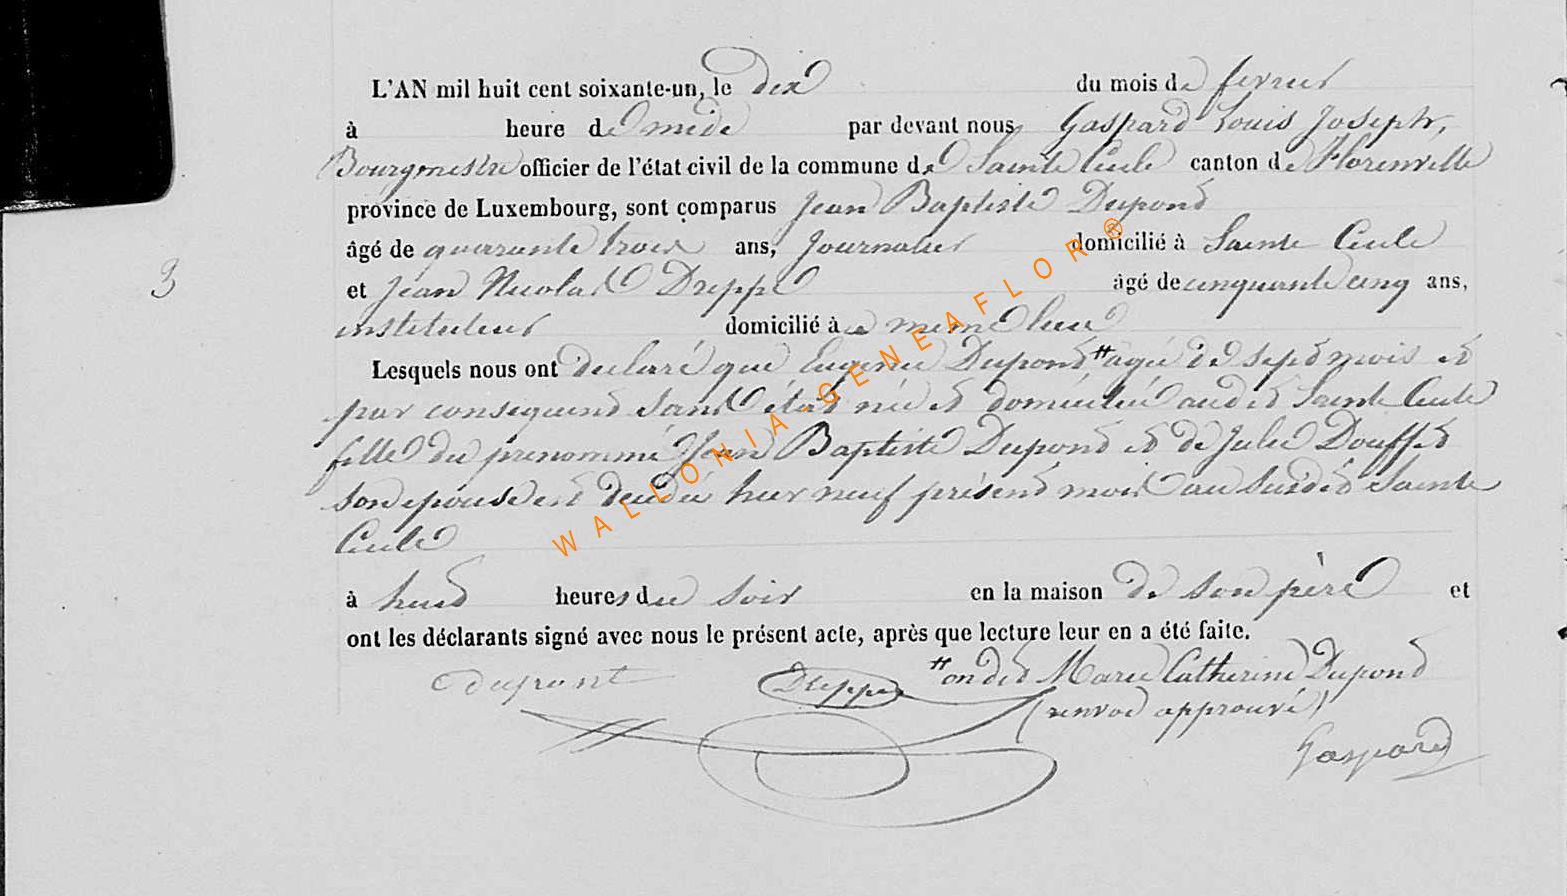 L'AN mil huit cent soixante-un, le dix du mois de fevrier
à heure de midi par devant nous Gaspard Louis Joseph,
Bourgmestre officier de l'état civil de la commune de Sainte Cecile canton de Florenville
province de Luxembourg, sont comparus Jean Baptiste Dupond
âgé de quarante trois ans, Journalier domicilié à Sainte Cecile
et Jean Nicolas Dreppe âgé de cinquante cinq ans,
3
instituteur domicilié à ce meme lieu
Lesquels nous ont declaré que Eugenie Dupond # agée de sept mois et
par consequent sans état née et domiciliée audit Sainte Cecile
fille du prenommé Jean Baptiste Dupond et de Julie Douffet
son epouse est decedée hier neuf présent mois au susdit Sainte
Cecile
à huit heures du soir en la maison de son père et
ont les déclarants signé avec nous le présent acte, après que lecture leur en a été faite.
dupont Dreppe # ondit Marie Catherine Dupond
(renvoi approuvé)
Gaspard
WALLONIA-GENEAFLOR®